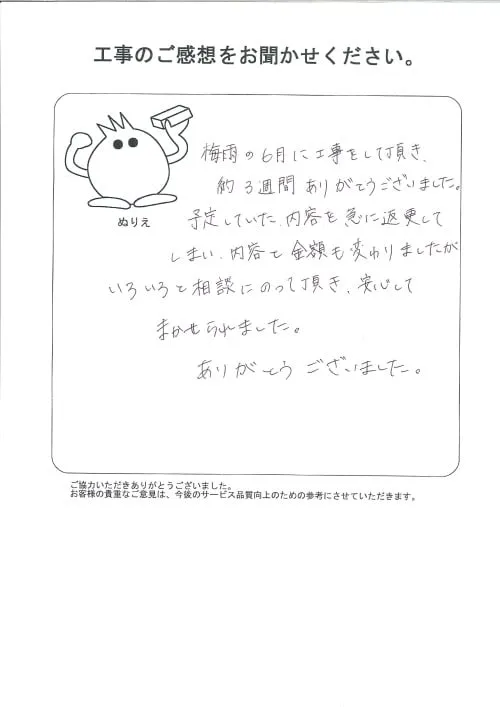 工事のご感想をお聞かせください。
梅雨の6月に工事をして頂き、
約3週間ありがとうございました。
ぬりえ
予定していた内容を急に返更して
しまい、内容と金額も変わりましたが
いろいろと相談にのって頂き、安心して
まかせられました。
ありがとうございました。
ご協力いただきありがとうございました。
お客様の貴重なご意見は、今後のサービス品質向上のための参考にさせていただきます。